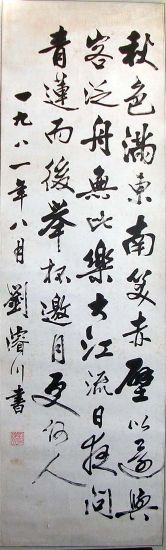 秋色滿東南赤壁以與
客泛舟無此樂大江流日夜問
青蓮而後舉杯邀月更何人
一九八一年八月劉濬川書